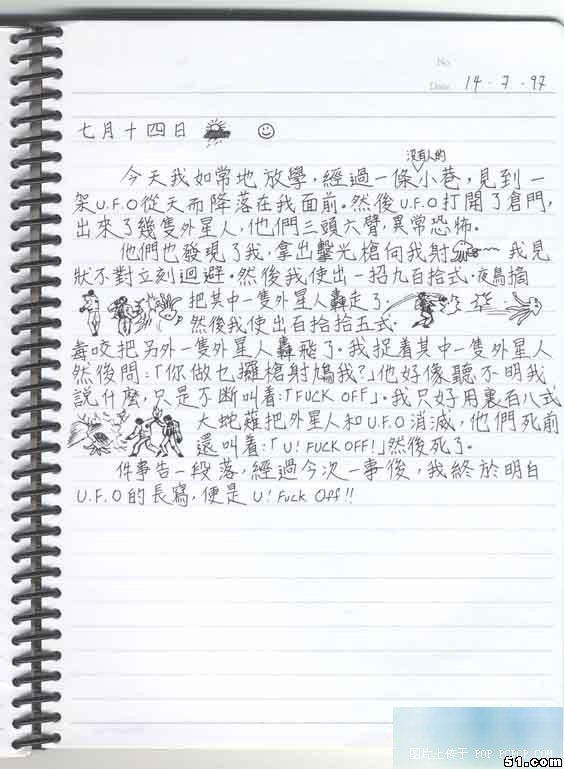 No
Date 14·7·97
七月十四日
沒有人的
今天我如常地放學,經過一條小巷,見到一
架U.F.O從天而降落在我面前.然後U.F.O打開了倉門,
出來了幾隻外星人,他們三頭六臂,異常恐怖.
他們也發現了我,拿出擊光槍向我射 我見
狀不對立刻迴避.然後我使出一招九百拾式.夜鳥摘
把其中一隻外星人轟走了.
然後我使出百拾拾五式.
毒咬把另外一隻外星人轟飛了.我捉着其中一隻外星人
然後問:「你做乜攞槍射鳩我?」他好像聽不明我
說什麼,只是不斷叫着:「FUCK OFF」.我只好用裏百八式
大蛇薙把外星人和U.F.O消滅,他們死前
還叫着:「U! FUCK OFF!」然後死了.
件事告一段落,經過今次一事後,我終於明白
U.F.O的長寫,便是U! Fuck Off!!
图片上传于 POP.PCPOP.COM
51.com